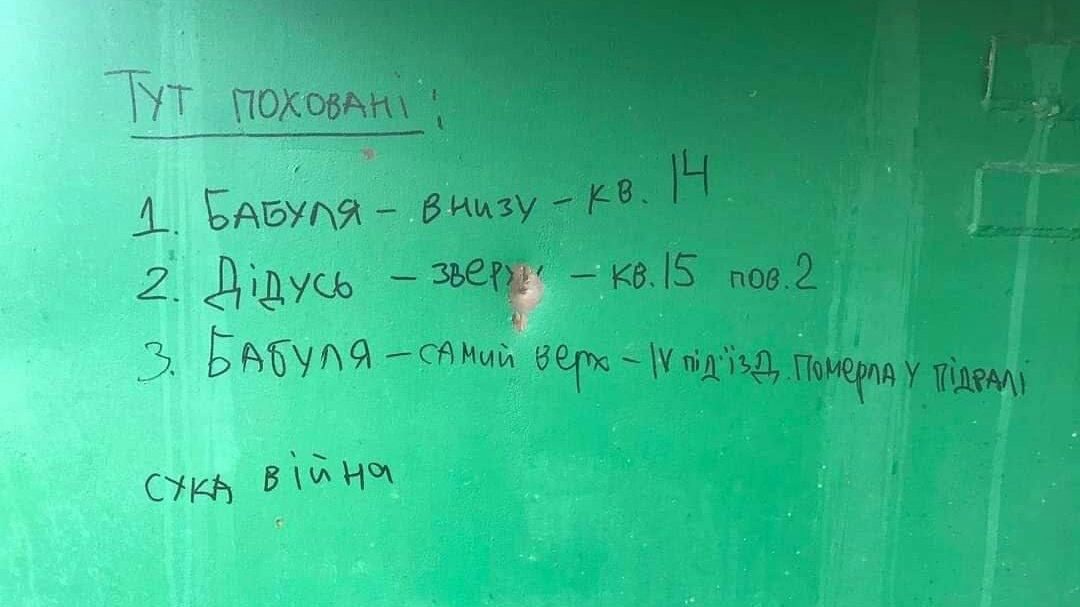 Тут поховані:
1. Бабуля – внизу – кв. 14
2. Дідусь – зверху – кв. 15 пов. 2
3. Бабуля – самий верх – IV під'їзд. Померла у підралі
сука війна